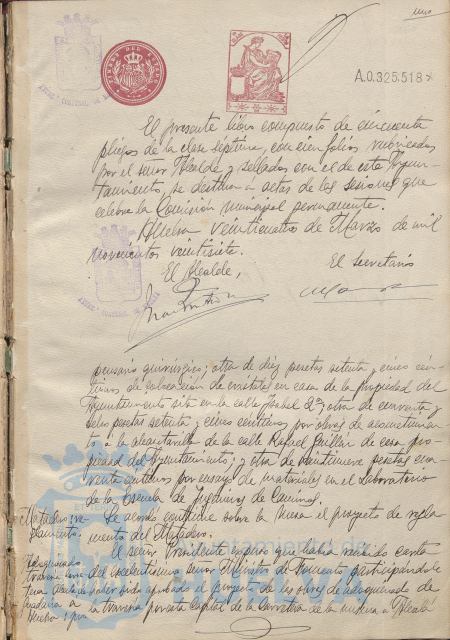 uno
TIMBRE DEL ESTADO
A.0.325.518*
El presente libro compuesto de cincuenta
pliegos de la clase septima, con cien folios rubricados
por el señor Alcalde y sellados con el de este Ayun-
tamiento, se destina a actas de las sesiones que
celebra la Comisión municipal permanente.
Huelva veinticuatro de Marzo de mil
novecientos veintisiete.
El Alcalde,
El Secretario
quirúrgico; otra de diez pesetas setenta y cinco cén-
timos de colocación de cristales en casa de la propiedad del
Ayuntamiento sita en la calle Isabel 2ª; otra de cincuenta y
seis pesetas setenta y cinco céntimos por obras de acometimien-
to a la alcantarilla de la calle Rafael Guillén de casa pro-
piedad del Ayuntamiento; y otra de veintinueve pesetas
céntimos por ensayo de materiales en el Laboratorio
de la Escuela de Ingenieros de Caminos.
Matadero; re-
glamento.
Se acordó continúe sobre la mesa el proyecto de regla-
mento del Matadero.
Adoquinado
El señor Presidente expuso que había recibido carta
del excelentísimo señor Ministro de Fomento participándole
haber sido aprobado el proyecto de las obras de adoquinado de
la travesía por esta Capital de la Carretera de
Ayuntamiento de
Huelva